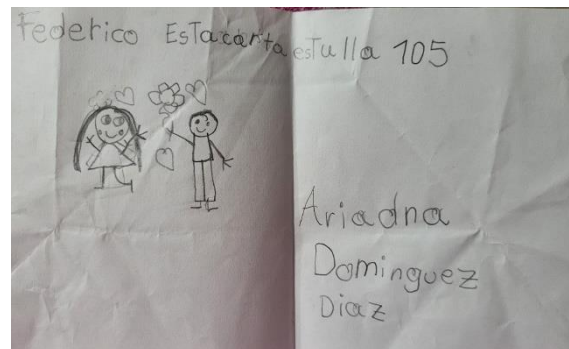 Federico Esta carta estulla 105
Ariadna
Dominguez
Diaz